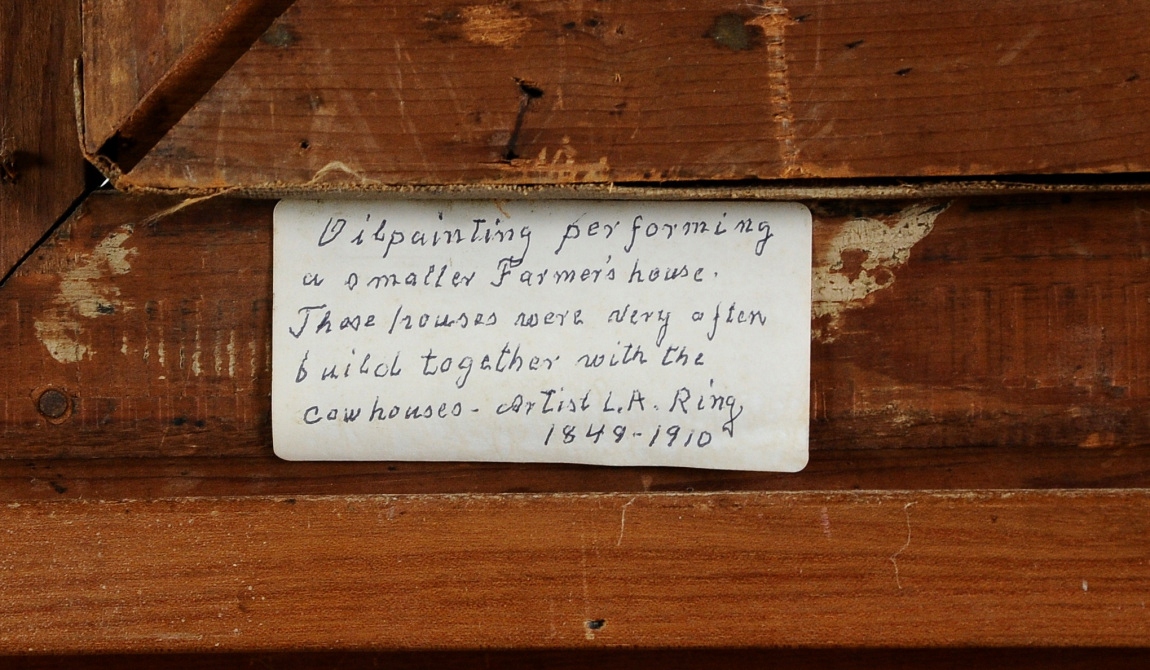 Oilpainting performing
a smaller Farmer's house.
Those houses were very often
build together with the
cowhouses - Artist L.A. Ring
1849-1910